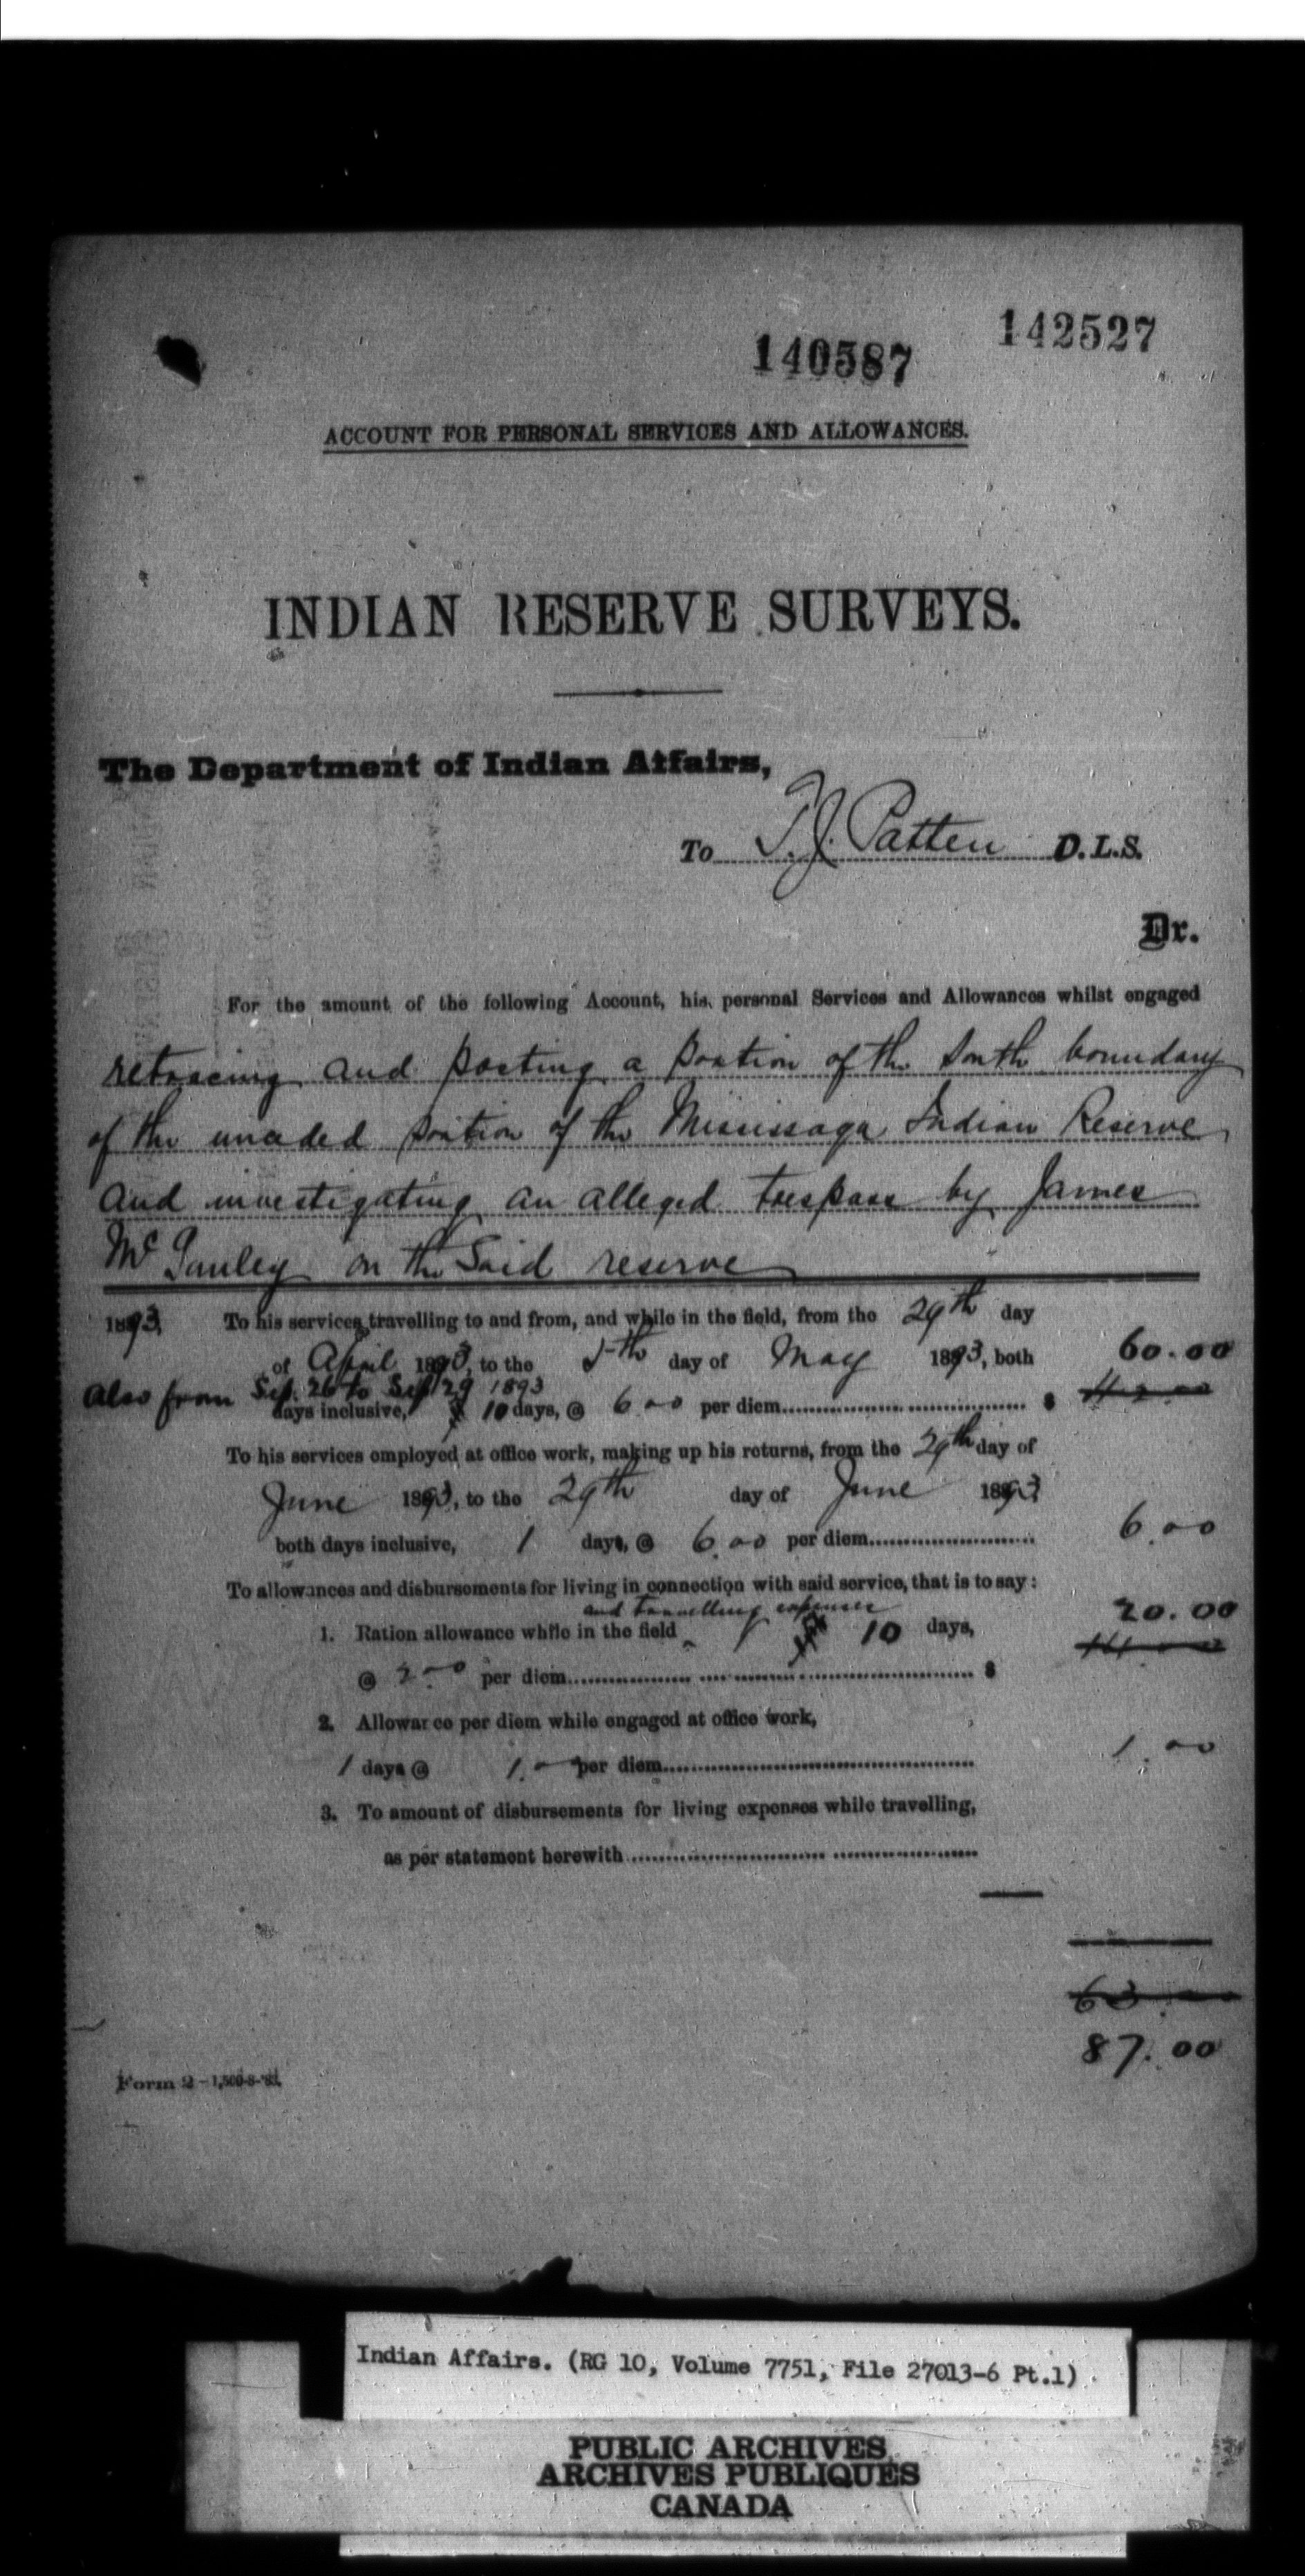 142527
140587
ACCOUNT FOR PERSONAL SERVICES AND ALLOWANCES.
INDIAN RESERVE SURVEYS.
The Department of Indian Affairs,
To T.J. Patten D.L.S.
Dr.
For the amount of the following Account, his personal Services and Allowances whilst engaged
retracing and posting a portion of the South boundary
of the unceded portion of the Mississaga Indian Reserve
and investigating an alleged trespass by James
McGauley on the Said reserve
1893, To his services travelling to and from, and while in the field, from the 29th day
of April 1893, to the 5th day of May 1893, both 60.00
Also from Sep. 26 to Sep 29 1893
days inclusive, 10 days, @ 6.00 per diem $ 42.00
To his services employed at office work, making up his returns, from the 29th day of
June 1893, to the 29th day of June 1893
both days inclusive, 1 days, @ 6.00 per diem 6.00
To allowances and disbursements for living in connection with said service, that is to say:
and travelling expenses 20.00
1. Ration allowance while in the field 10 days, 14.00
@ 2.00 per diem $
2. Allowance per diem while engaged at office work,
1 days @ 1.00 per diem 1.00
3. To amount of disbursements for living expenses while travelling,
as per statement herewith
63.
87.00
Form 2
Indian Affairs. (RG 10, Volume 7751, File 27013-6 Pt.1)
PUBLIC ARCHIVES
ARCHIVES PUBLIQUES
CANADA